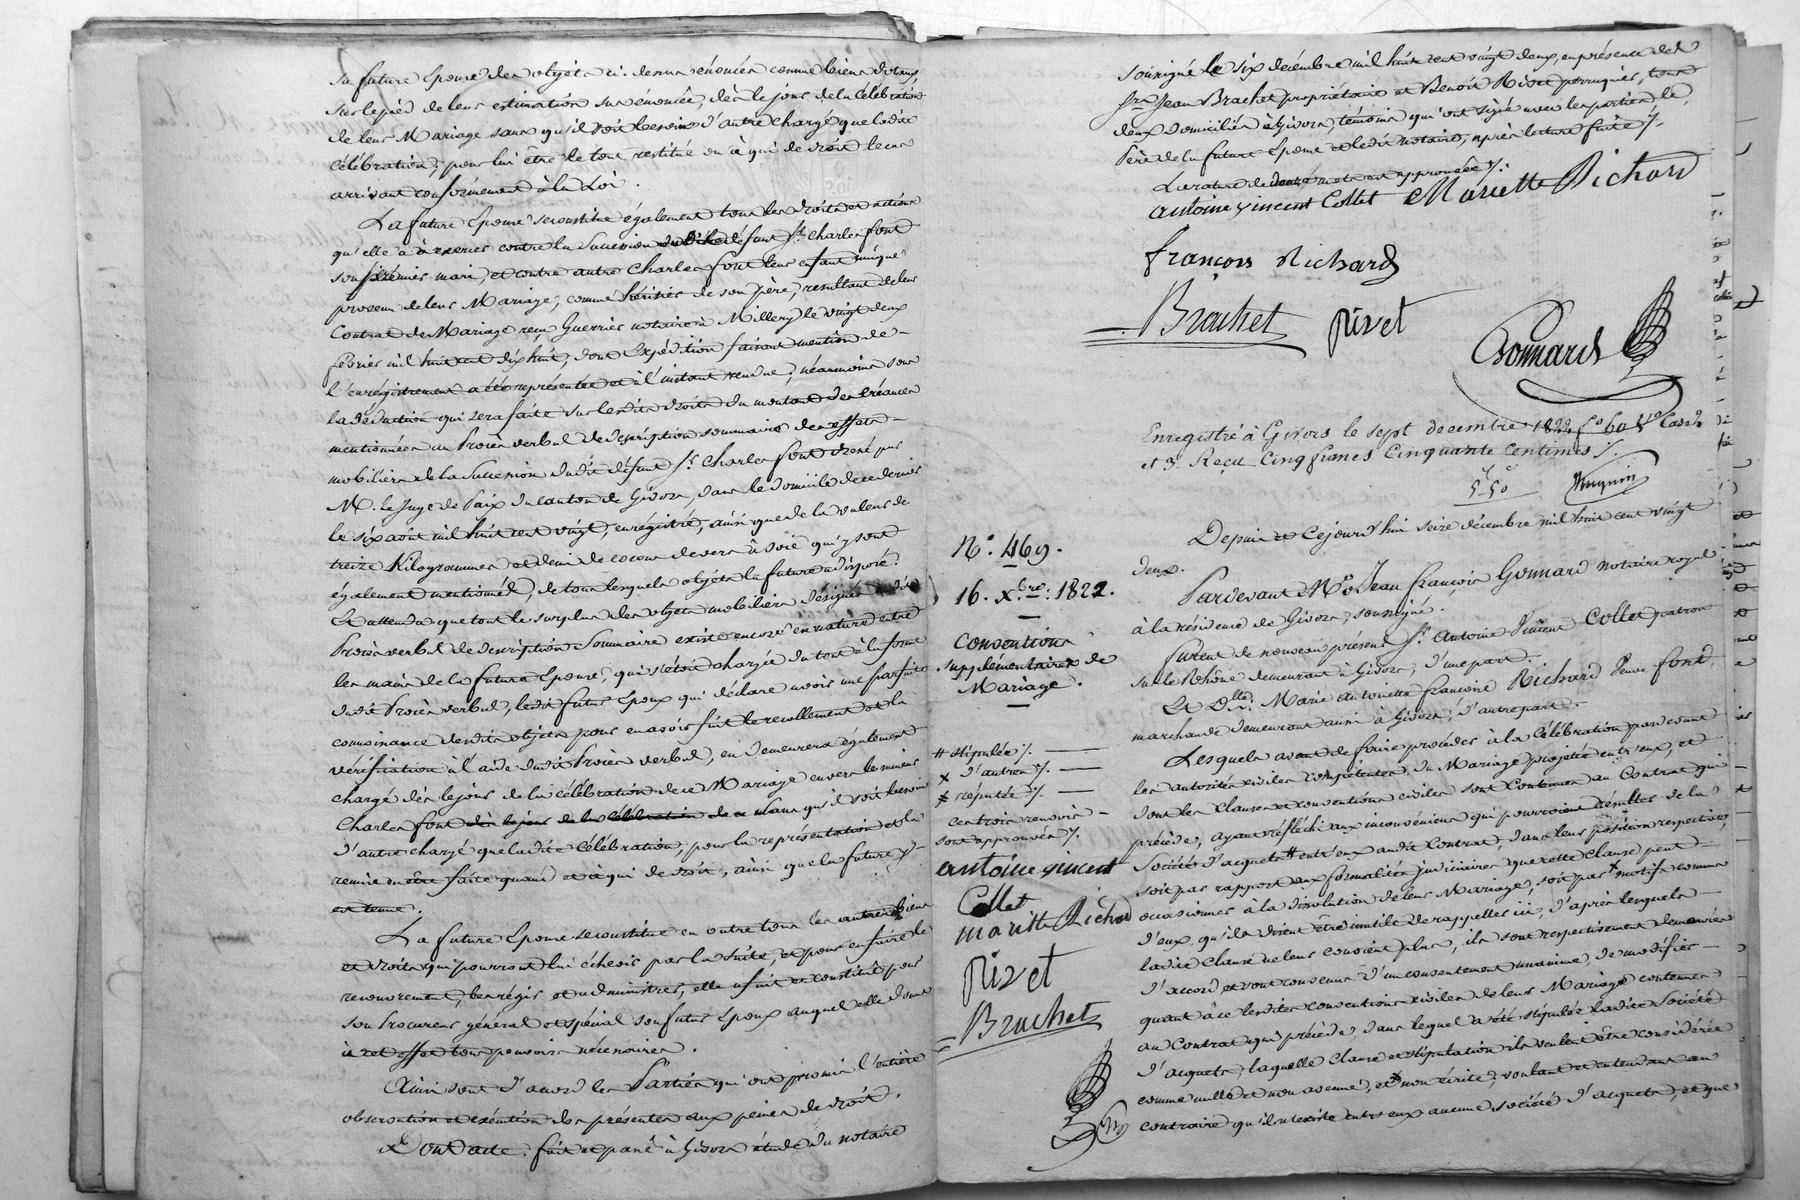 sa future Epouse des objets ci-dessus énoncés comme biens dotaux,
sur le pied de leur estimation sus énoncée, dès le jour de la célébration
de leur Mariage sans qu'il soit besoin d'autre charge que ladite
célébration; pour lui être le tout restitué ou à qui de droit le cas
arrivant conformément à la Loi.
La future Epouse se constitue également tous les droits et actions
qu'elle a à exercer contre la succession dudit défunt Sr. Charles font
son premier mari, et contre autre Charles font leur enfant unique
provenu de leur Mariage, comme héritier de son père, résultant de leur
Contrat de Mariage reçu Guerrier notaire à Millery le vingt deux
février mil huit cent dix huit, dont Expédition faisant mention de
l'enrégistrement a été représentée et à l'instant rendue; néanmoins sous
la déduction qui sera faite sur lesdits droits du montant des créances
mentionnées au Procès verbal de description sommaire des effets
mobiliers de la succession dudit défunt Sr. Charles font dressé par
M. le Juge de Paix du canton de Givors, dans le domicile de ce dernier
le six août mil huit cent vingt, enrégistré, ainsi que de la valeur de
treize Kilogrammes et demi de cocons de vers à soie qui y sont
également mentionnés, de tous lesquels objets la future a disposé.
Et attendu que tout le surplus des objets mobiliers désignés audit
Procès verbal de description Sommaire existe encore en nature entre
les mains de la future Epouse, qui s'étoit chargée du tout à la forme
dudit Procès verbal, ledit futur Epoux qui déclare avoir une parfaite
connoissance desdits objets pour en avoir fait le recollement et la
vérification à l'aide dudit Procès verbal, en demeurera également
chargé dès le jour de la célébration de ce Mariage envers le mineur
Charles font dès le jour de la célébration de ce sans qu'il soit besoin
d'autre charge que ladite célébration, pour la représentation et la
remise en être faite quand et à qui de droit, ainsi que la future y
est tenue.
La future Epouse se constitue en outre tous les autres biens
et droits qui pourront lui échoir par la suite, et pour en faire le
recouvrement, les régir et administrer, elle a fait et constitué pour
son Procureur général et spécial son futur Epoux auquel elle donne
à cet effet tous pouvoirs nécessaires.
Ainsi sont d'accord les Parties qui ont promis l'entière
observation et exécution des présentes aux peines de droit.
Dont acte. fait et passé à Givors étude du notaire
soussigné le six décembre mil huit cent vingt deux, en présence de
Srs. Jean Brachet propriétaire et Benoît Rivet perruquier, tous
deux domiciliés à Givors, témoins qui ont signé avec les parties le
Père de la future Epouse et ledit notaire, après lecture faite /.
La rature de douze mots est approuvée /.
antoine vincent Collet Mariette Richard
françois Richard
Brachet rivet
Gonnard
Enregistré à Givors le sept decembre 1822 fo. 60 Vo. Cases 2
et 3. Reçu Cinq francs Cinquante Centimes /.
5-50
Depuis et Cejourd'hui seize décembre mil huit cent vingt
deux.
Pardevant Me. Jean françois Gonnard notaire royal
à la résidence de Givors, soussigné.
furent de nouveau présens Sr. Antoine Vincent Collet patron
sur le Rhône demeurant à Givors, d'une part.
Et Dlle. Marie Antoinette françoise Richard Veuve font,
marchande demeurant aussi à Givors, d'autre part.
Lesquels avant de faire procéder à la célébration pardevant
les autorités civiles compétentes du Mariage projetté entr'eux, et
dont les clauses et conventions civiles sont contenues au Contrat qui
précède, ayant réfléchi aux inconvéniens qui pourroient résulter de la
Société d'acquets # entr'eux audit Contrat, dans leur position respective,
soit par rapport aux formalités judiciaires que cette clause peut
occasionner à la dissolution de leur Mariage, soit par x motifs connus
d'eux, qu'ils disent être inutile de rappeller ici, d'après lesquels
ladite clause ne leur convient plus, ils sont respectivement demeurés
d'accord et sont convenus d'un consentement unanime, de modifier
quant à ce lesdites conventions civiles de leur Mariage contenues
au Contrat qui précède, dans lequel a été stipulée ladite Société
d'acquets; laquelle clause et stipulation ils veulent être considérée
comme nulle et non avenue, et x non écrite, voulant et entendant au
contraire qu'il n'existe entre eux aucune société d'acquets, et que
No. 469.
16. Xbre. 1822.
Conventions
supplémentaires de
Mariage.
# stipulée /.
x d'autres /.
x réputée /.
ces trois renvois
sont approuvés /.
antoine vincent
Collet
mariette Richard
rivet
Brachet